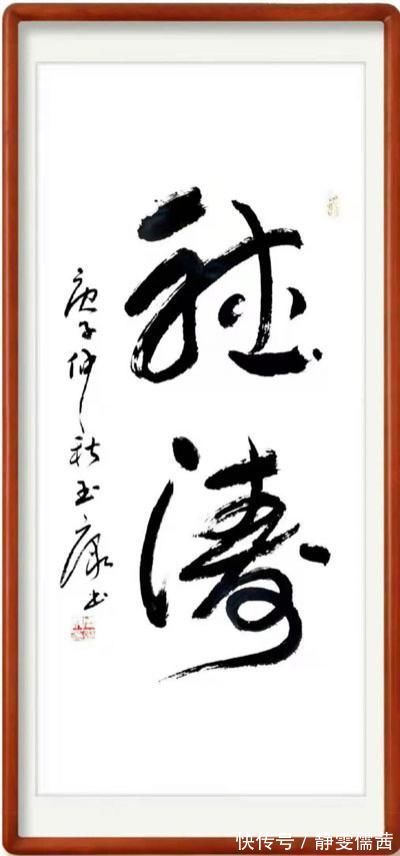 聽濤
庚子仲秋玉康书
快传号 / 静雯儒茜